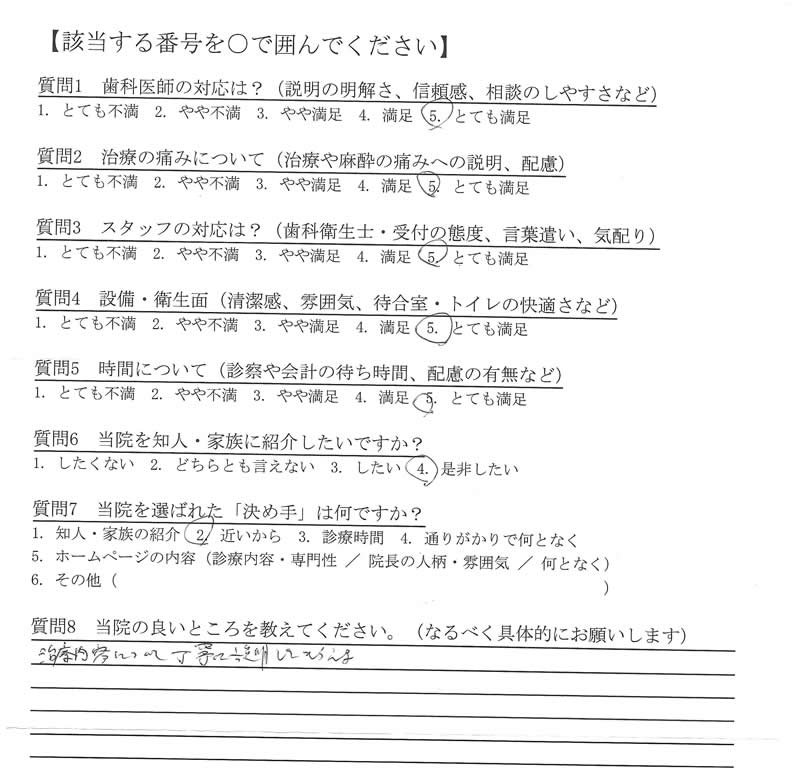 【該当する番号を〇で囲んでください】
質問1 歯科医師の対応は？（説明の明解さ、信頼感、相談のしやすさなど）
1. とても不満 2. やや不満 3. やや満足 4. 満足 5. とても満足
質問2 治療の痛みについて（治療や麻酔の痛みへの説明、配慮）
1. とても不満 2. やや不満 3. やや満足 4. 満足 5. とても満足
質問3 スタッフの対応は？（歯科衛生士・受付の態度、言葉遣い、気配り）
1. とても不満 2. やや不満 3. やや満足 4. 満足 5. とても満足
質問4 設備・衛生面（清潔感、雰囲気、待合室・トイレの快適さなど）
1. とても不満 2. やや不満 3. やや満足 4. 満足 5. とても満足
質問5 時間について（診察や会計の待ち時間、配慮の有無など）
1. とても不満 2. やや不満 3. やや満足 4. 満足 5. とても満足
質問6 当院を知人・家族に紹介したいですか？
1. したくない 2. どちらとも言えない 3. したい 4. 是非したい
質問7 当院を選ばれた「決め手」は何ですか？
1. 知人・家族の紹介 2. 近いから 3. 診療時間 4. 通りがかりで何となく
5. ホームページの内容（診療内容・専門性 ／ 院長の人柄・雰囲気 ／ 何となく）
6. その他（ ）
質問8 当院の良いところを教えてください。（なるべく具体的にお願いします）
治療内容について丁寧に説明して